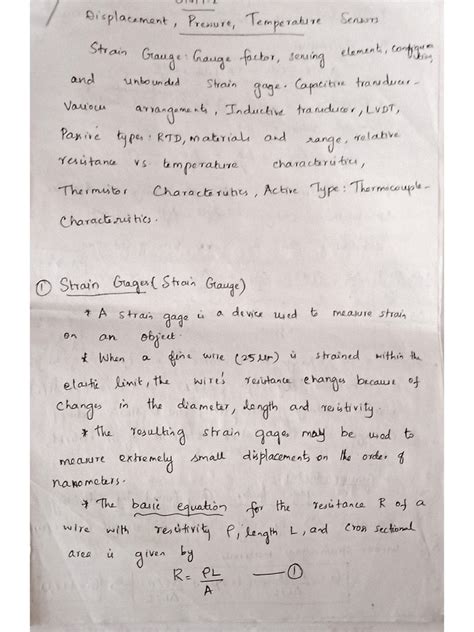 Unit-2
Displacement, Pressure, Temperature Sensors
Strain Gauge: Gauge factor, sensing element, configuration,
and unbounded strain gage. Capacitive transducer -
Various arrangements, Inductive transducer, LVDT,
Passive types: RTD, materials and range, relative
resistance vs. temperature characteristics,
Thermistor Characteristics, Active Type: Thermocouple -
Characteristics.
① Strain Gages (Strain Gauge)
* A strain gage is a device used to measure strain
on an object.
* When a fine wire (25 μm) is strained within the
elastic limit, the wire's resistance changes because of
changes in the diameter, length and resistivity.
* The resulting strain gages may be used to
measure extremely small displacements, on the order of
nanometers.
* The basic equation for the resistance R of a
wire with resitivity ρ, length L, and cross sectional
area is given by
R = ρL/A —— ①